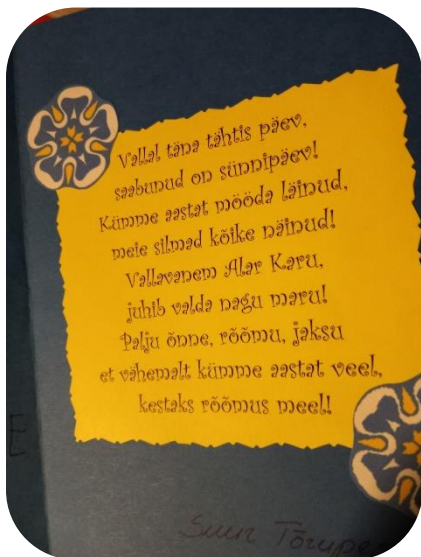 Vallal täna tähtis päev,
saabunud on sünnipäev!
Kümme aastat mööda läinud,
meie silmad kõike näinud!
Vallavanem Alar Karu,
juhib valda nagu maru!
Palju õnne, rõõmu, jaksu
et vähemalt kümme aastat veel,
kestaks rõõmus meel!
Suur